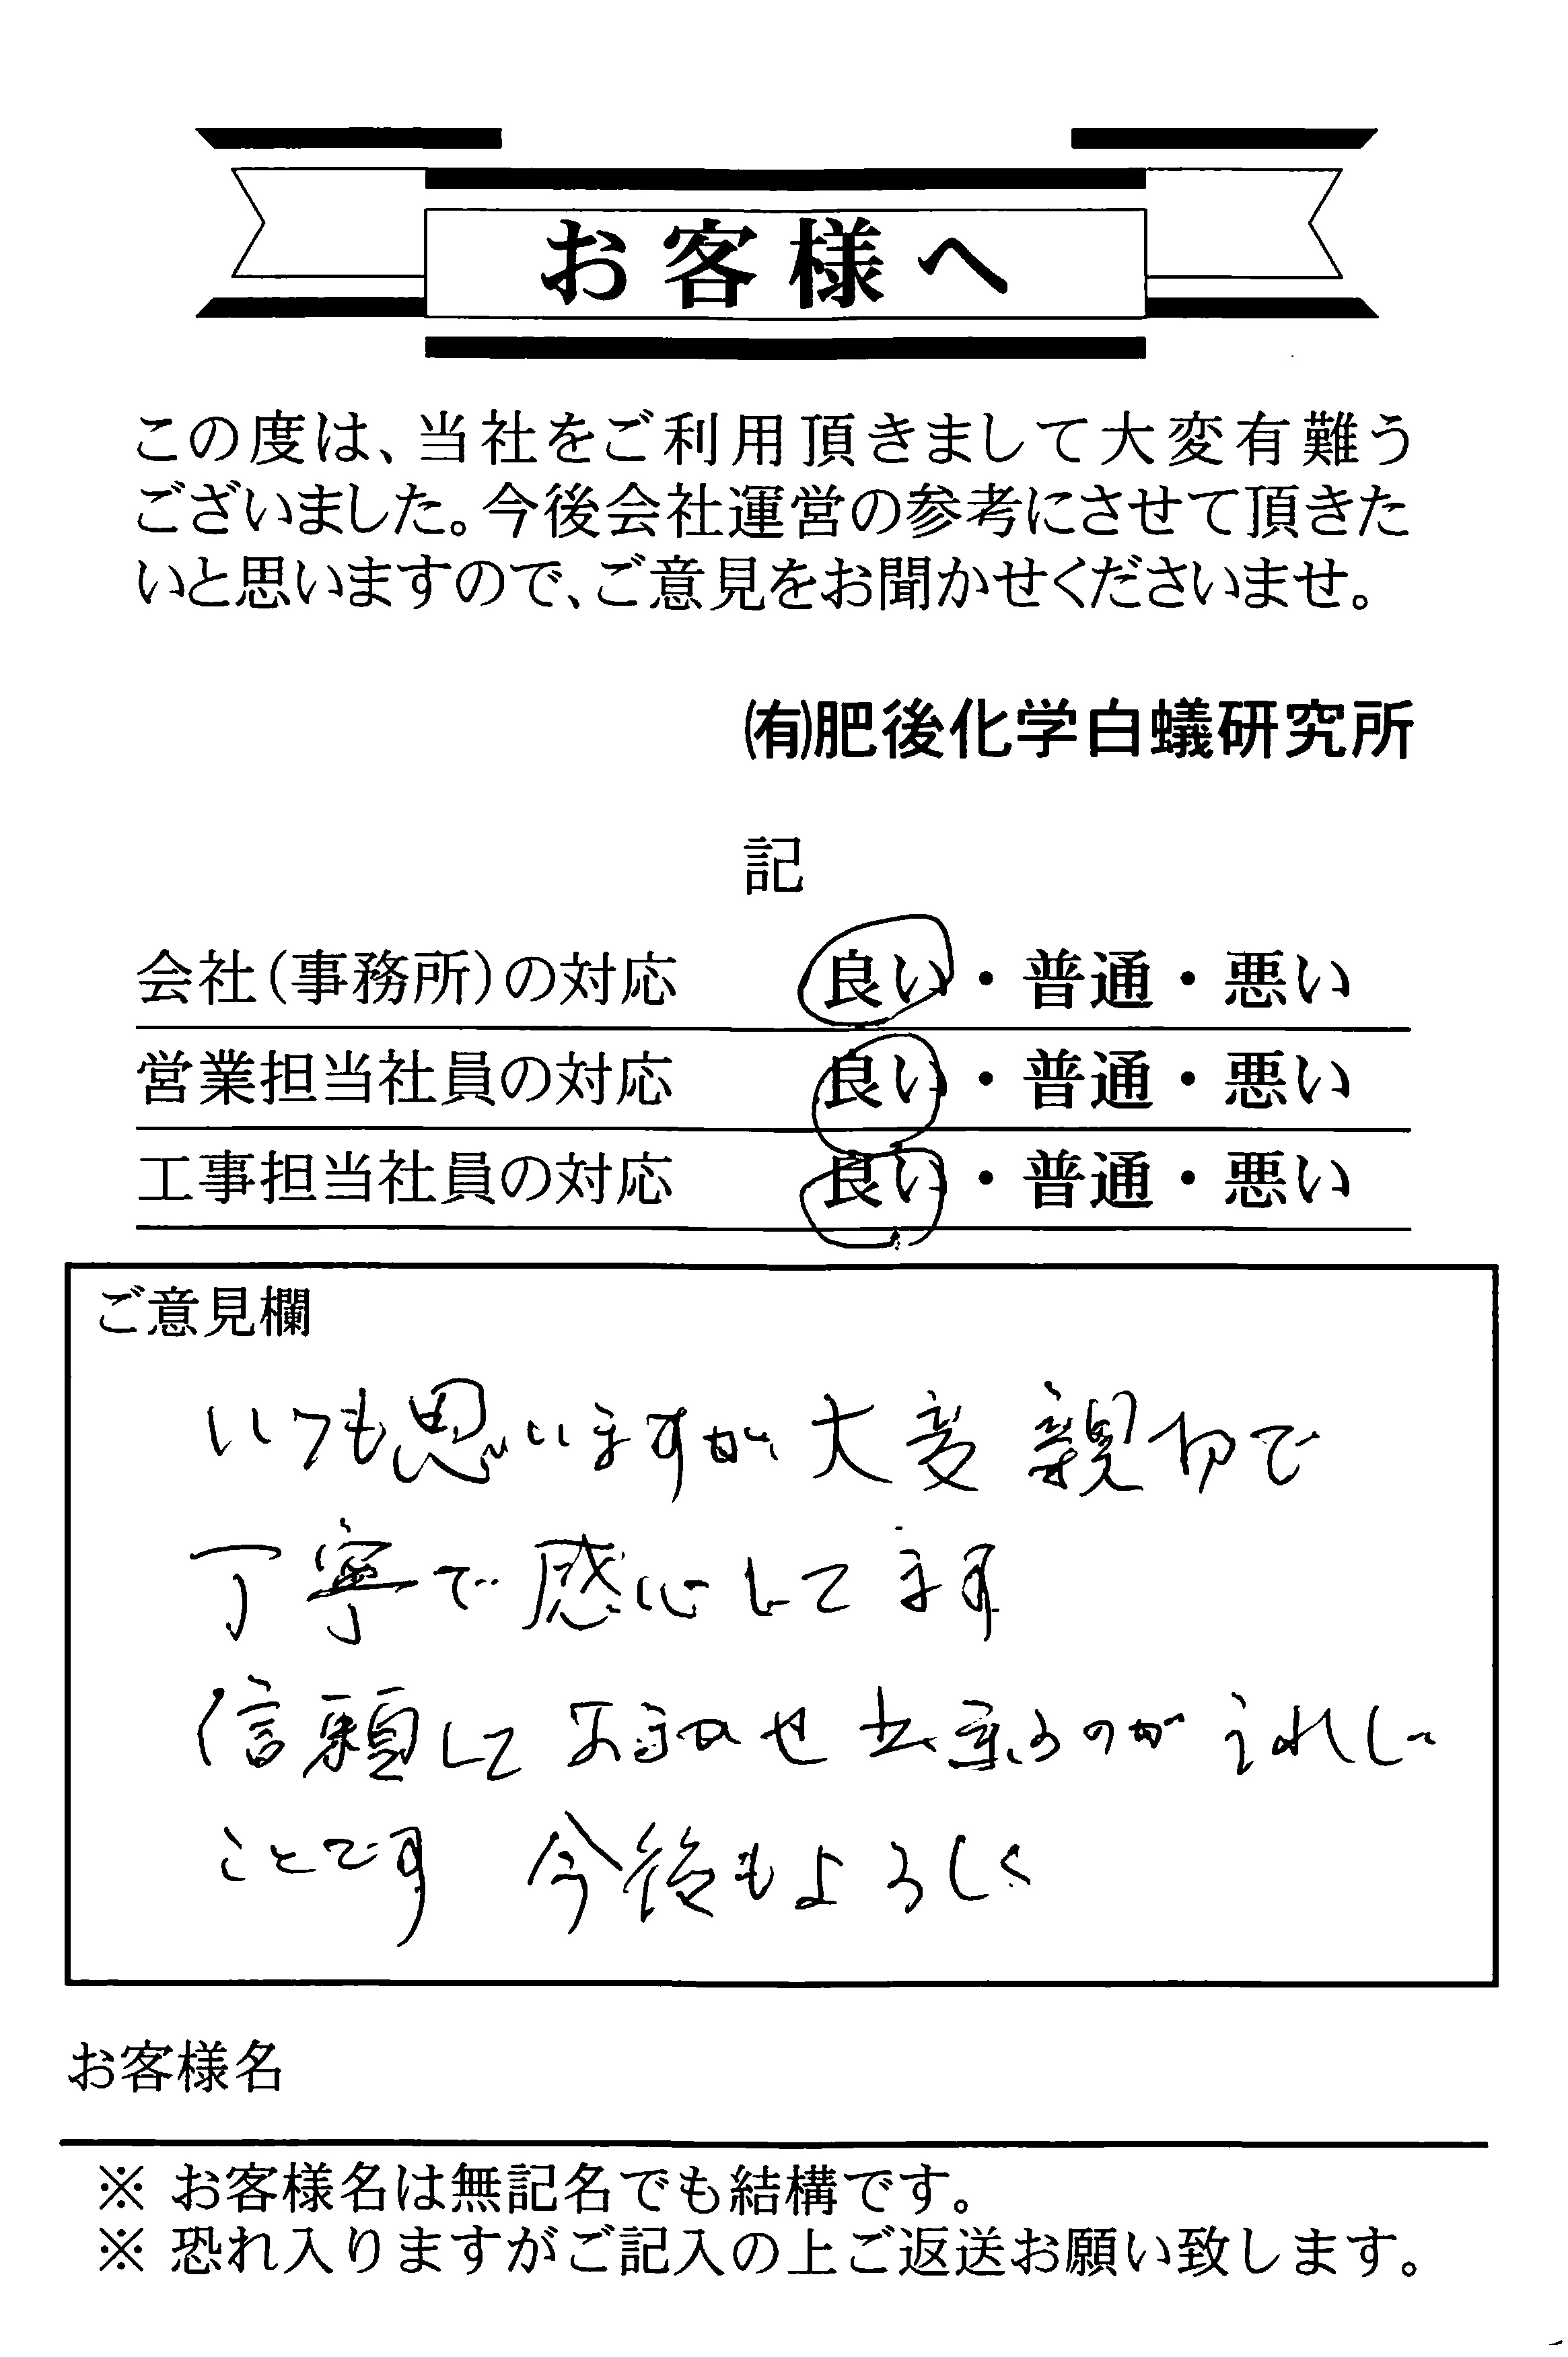 お客様へ
この度は、当社をご利用頂きまして大変有難う
ございました。今後会社運営の参考にさせて頂きた
いと思いますので、ご意見をお聞かせくださいませ。
㈲肥後化学白蟻研究所
記
会社(事務所)の対応 良い・普通・悪い
営業担当社員の対応 良い・普通・悪い
工事担当社員の対応 良い・普通・悪い
ご意見欄
いつも思いますが大変親切で
丁寧で感心してます
信頼してお任せ出来るのがうれしい
ことです 今後もよろしく
お客様名
※ お客様名は無記名でも結構です。
※ 恐れ入りますがご記入の上ご返送お願い致します。